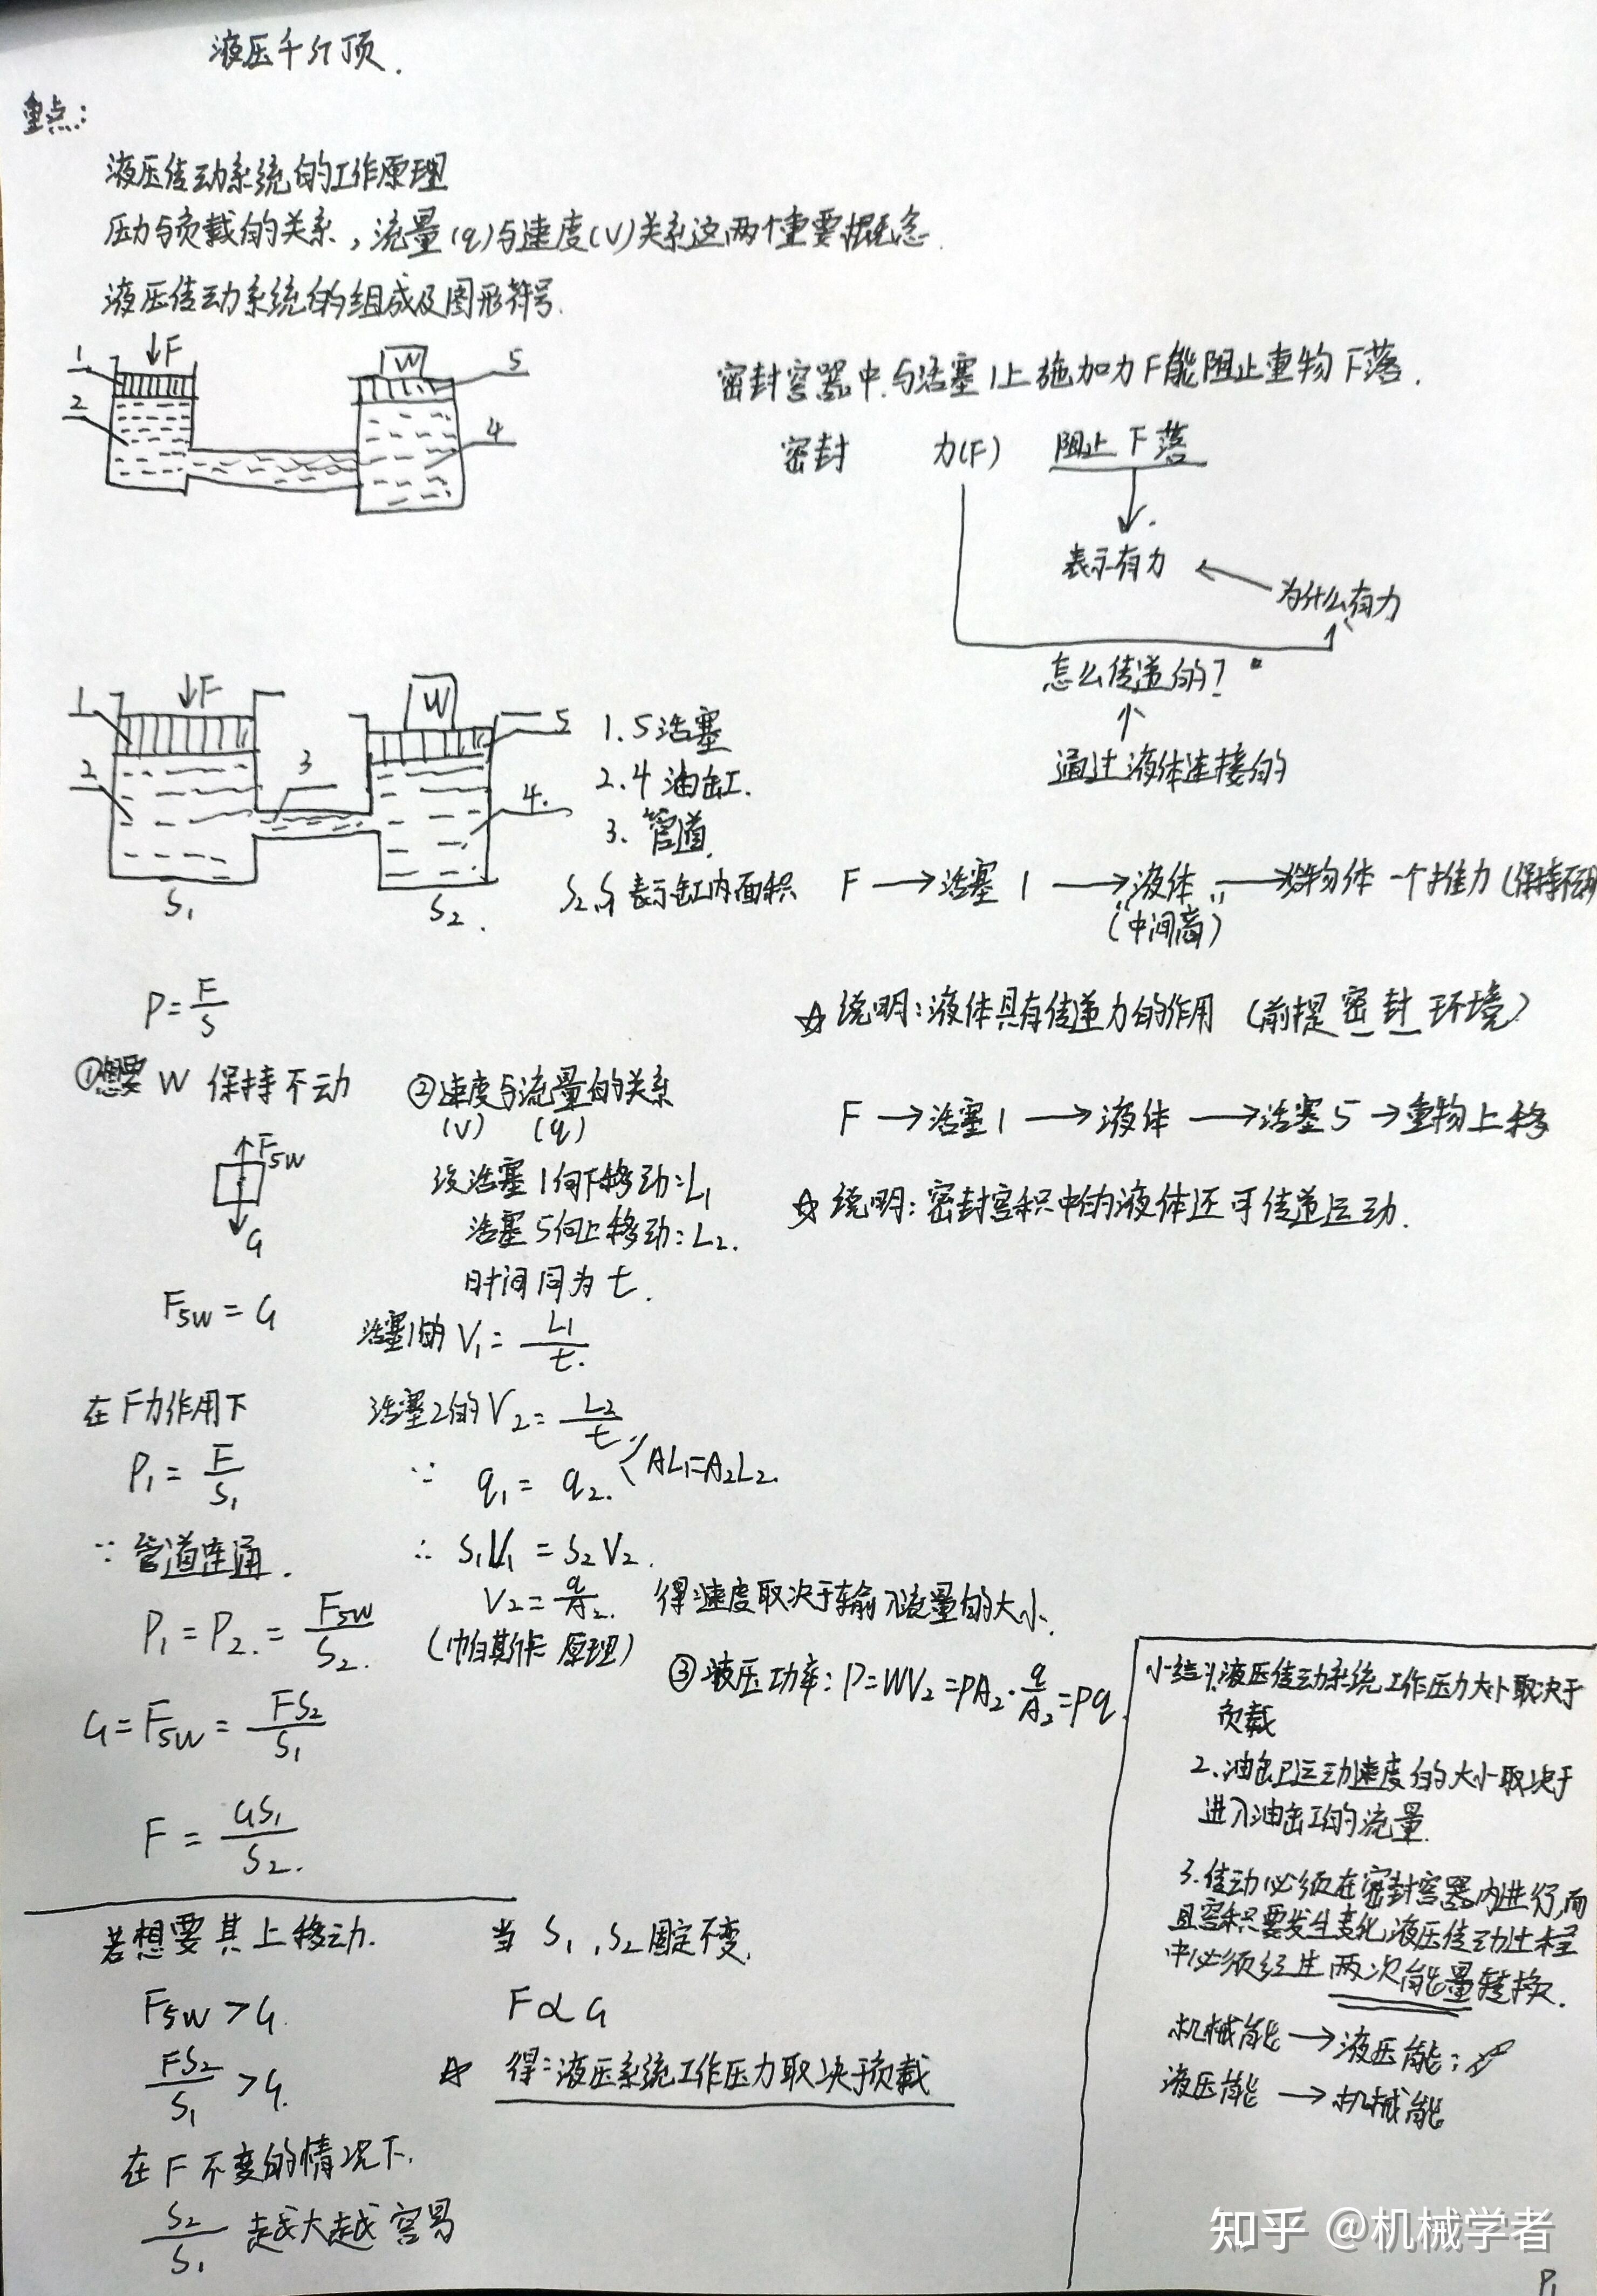 液压千斤顶.
重点:
液压传动系统的工作原理
压力与负载的关系,流量(q)与速度(V)关系这两个重要概念.
液压传动系统的组成及图形符号.
1 ↓F W 5
2 4
密封容器中.与活塞1上施加力F能阻止重物下落.
密封 力(F) 阻止下落
表示有力
为什么有力
怎么传递的?
通过液体连接的
1 ↓F W 5
2 3 4.
S1 S2.
1.5活塞
2.4油缸.
3.管道.
S2,S1表示缸内面积
F→活塞1→液体→给物体一个推力(保持不动)
(“中间商”)
☆说明:液体具有传递力的作用(前提密封环境)
F→活塞1→液体→活塞5→重物上移
☆说明:密封容积中的液体还可传递运动.
P=F/S
①想要W保持不动
F5W
G
F5W=G
在F力作用下
P1=F/S1
∵管道连通.
P1=P2.=F5W/S2.
(帕斯卡原理)
G=F5W=FS2/S1
F=GS1/S2.
②速度与流量的关系
(V) (q)
设活塞1向下移动:L1
活塞5向上移动:L2.
时间同为t.
活塞1的V1=L1/t.
活塞2的V2=L2/t
∵ q1=q2. AL1=A2L2.
∴S1V1=S2V2.
V2=q/A2. 得:速度取决于输入流量的大小.
③液压功率:P=WV2=PA2·q/A2=Pq.
若想要其上移动.
F5W>G.
FS2/S1>G.
在F不变的情况下.
S2/S1越大越容易
当S1,S2固定不变.
F∝G
☆ 得:液压系统工作压力取决于负载
小结:1.液压传动系统工作压力大小取决于
负载
2.油缸运动速度的大小取决于
进入油缸的流量.
3.传动必须在密封容器内进行,而
且容积要发生变化,液压传动过程
中必须经过两次能量转换.
机械能→液压能;
液压能→机械能
知乎 @机械学者
P1